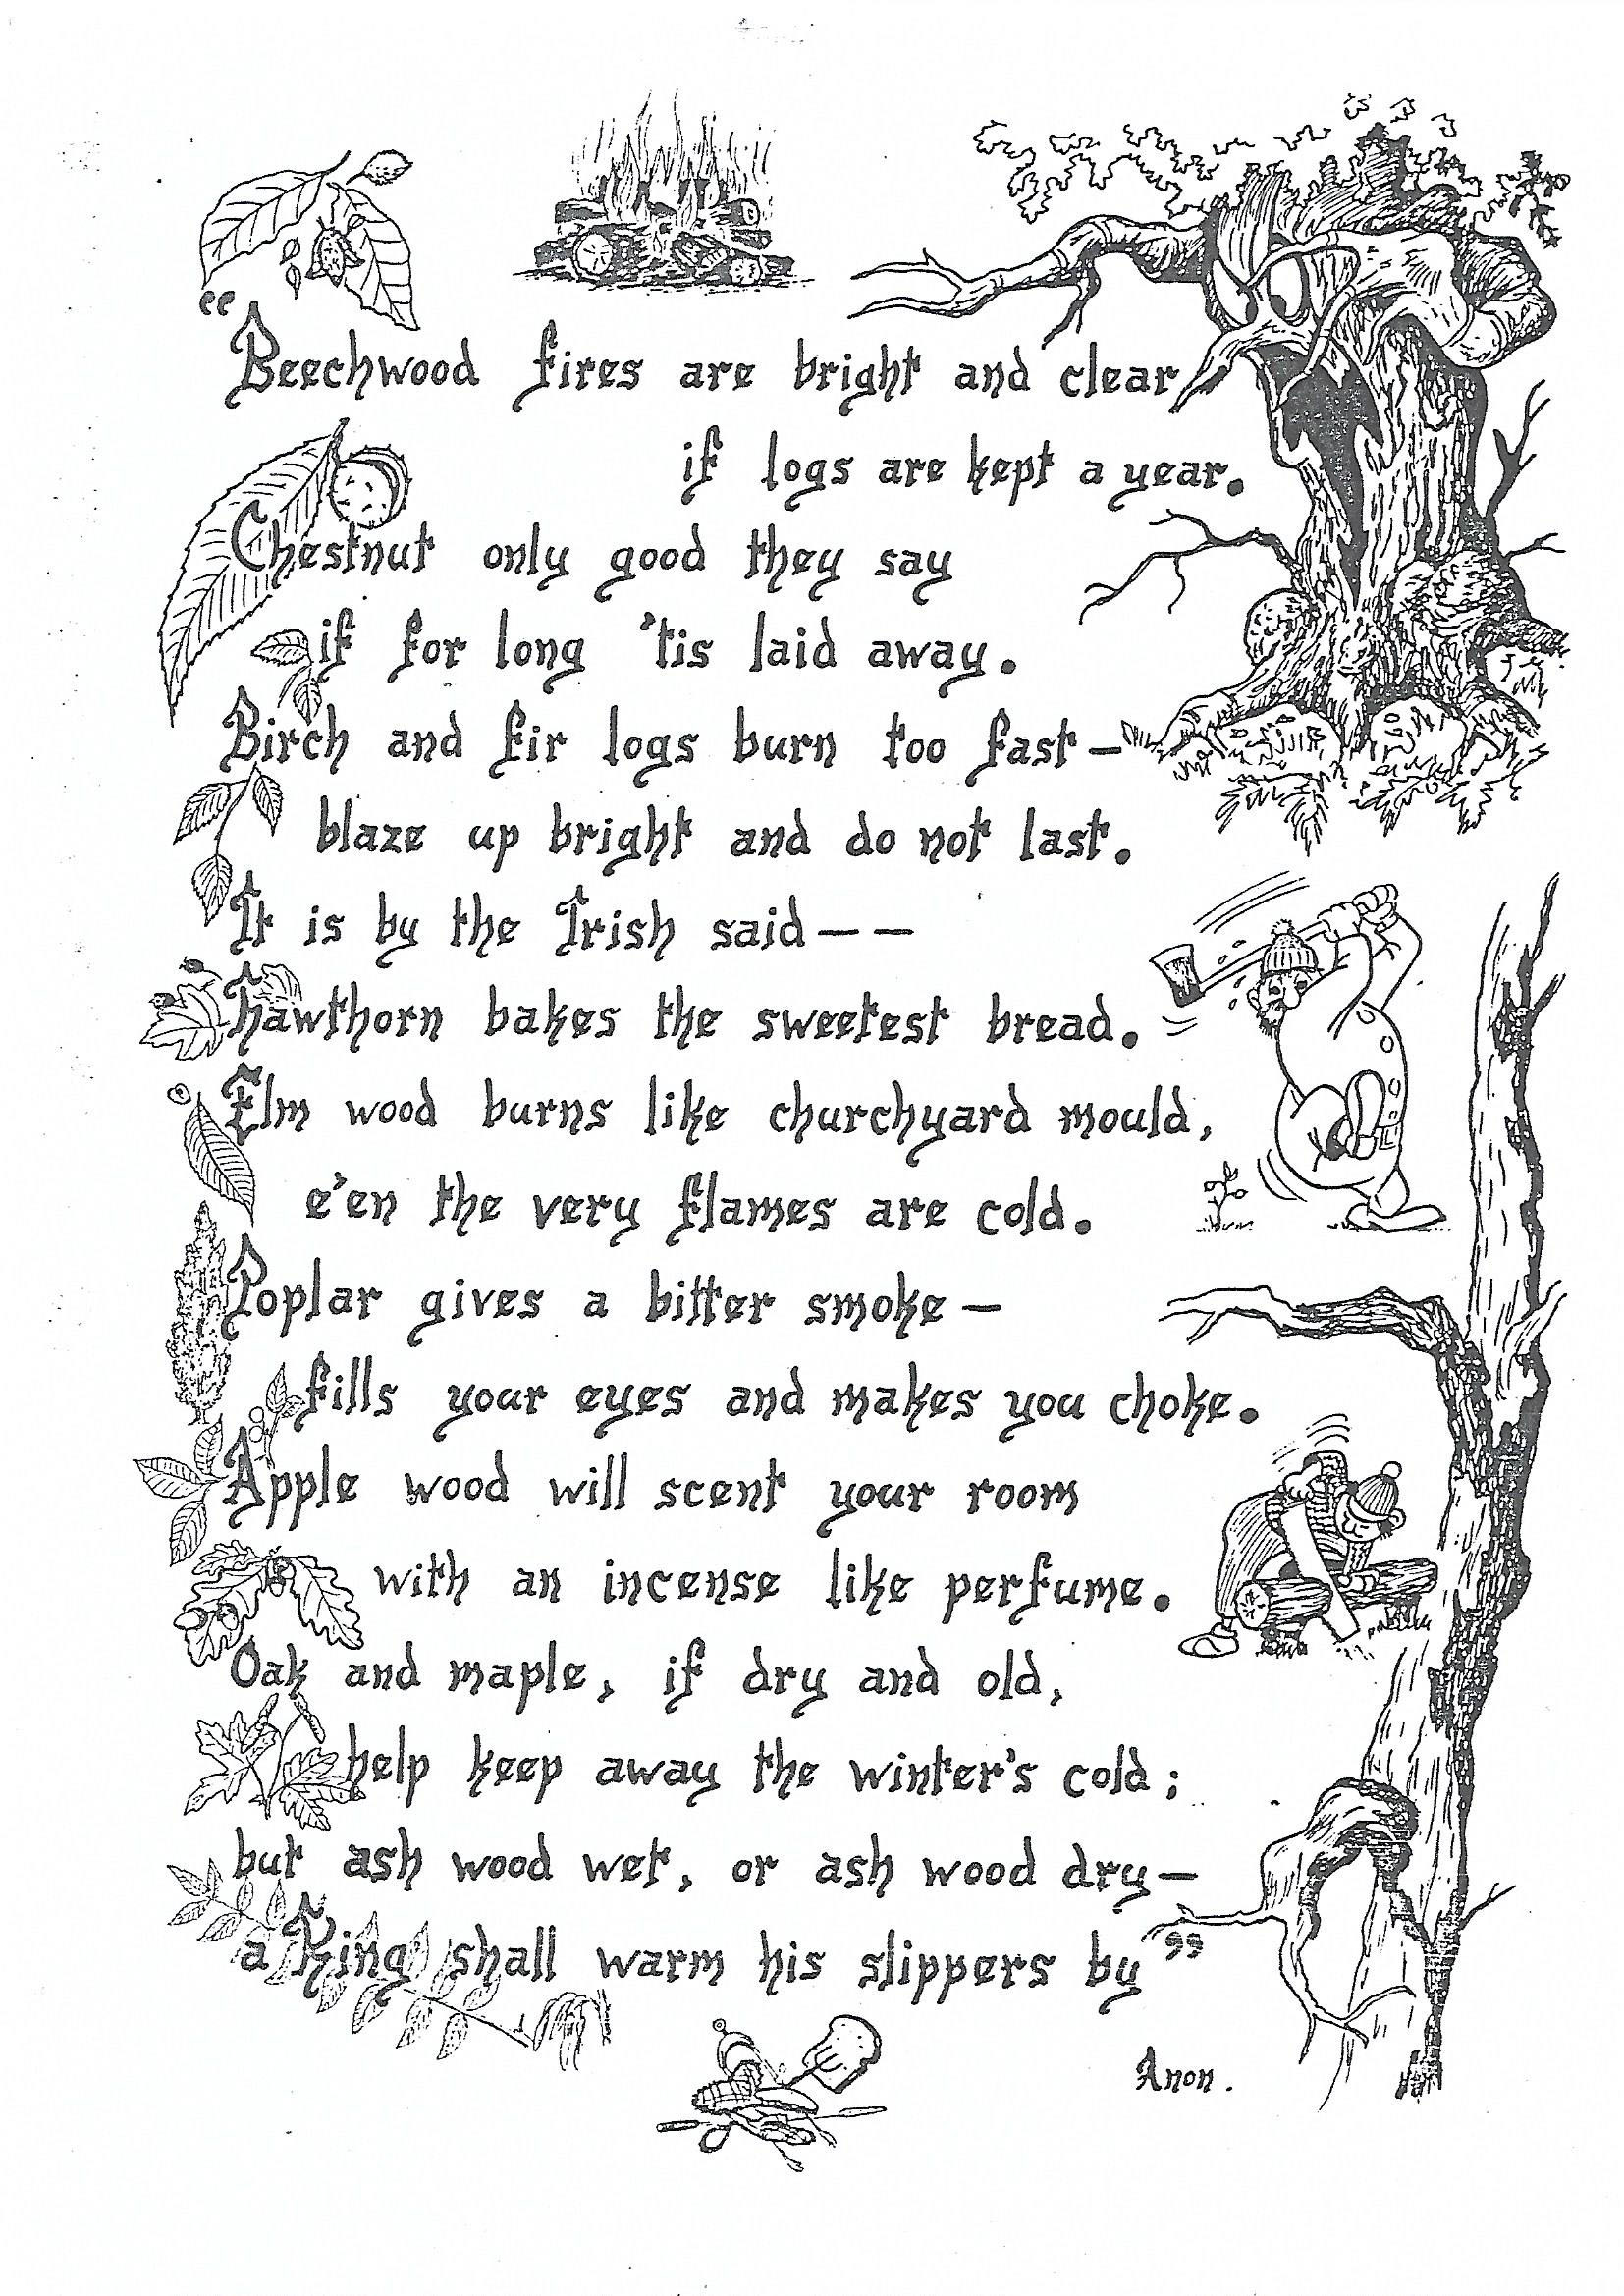 “Beechwood fires are bright and clear
if logs are kept a year.
Chestnut only good they say
if for long 'tis laid away.
Birch and fir logs burn too fast –
blaze up bright and do not last.
It is by the Irish said – –
Hawthorn bakes the sweetest bread.
Elm wood burns like churchyard mould,
e'en the very flames are cold.
Poplar gives a bitter smoke –
fills your eyes and makes you choke.
Apple wood will scent your room
with an incense like perfume.
Oak and maple, if dry and old,
help keep away the winter's cold;
but ash wood wet, or ash wood dry –
a King shall warm his slippers by”
Anon.